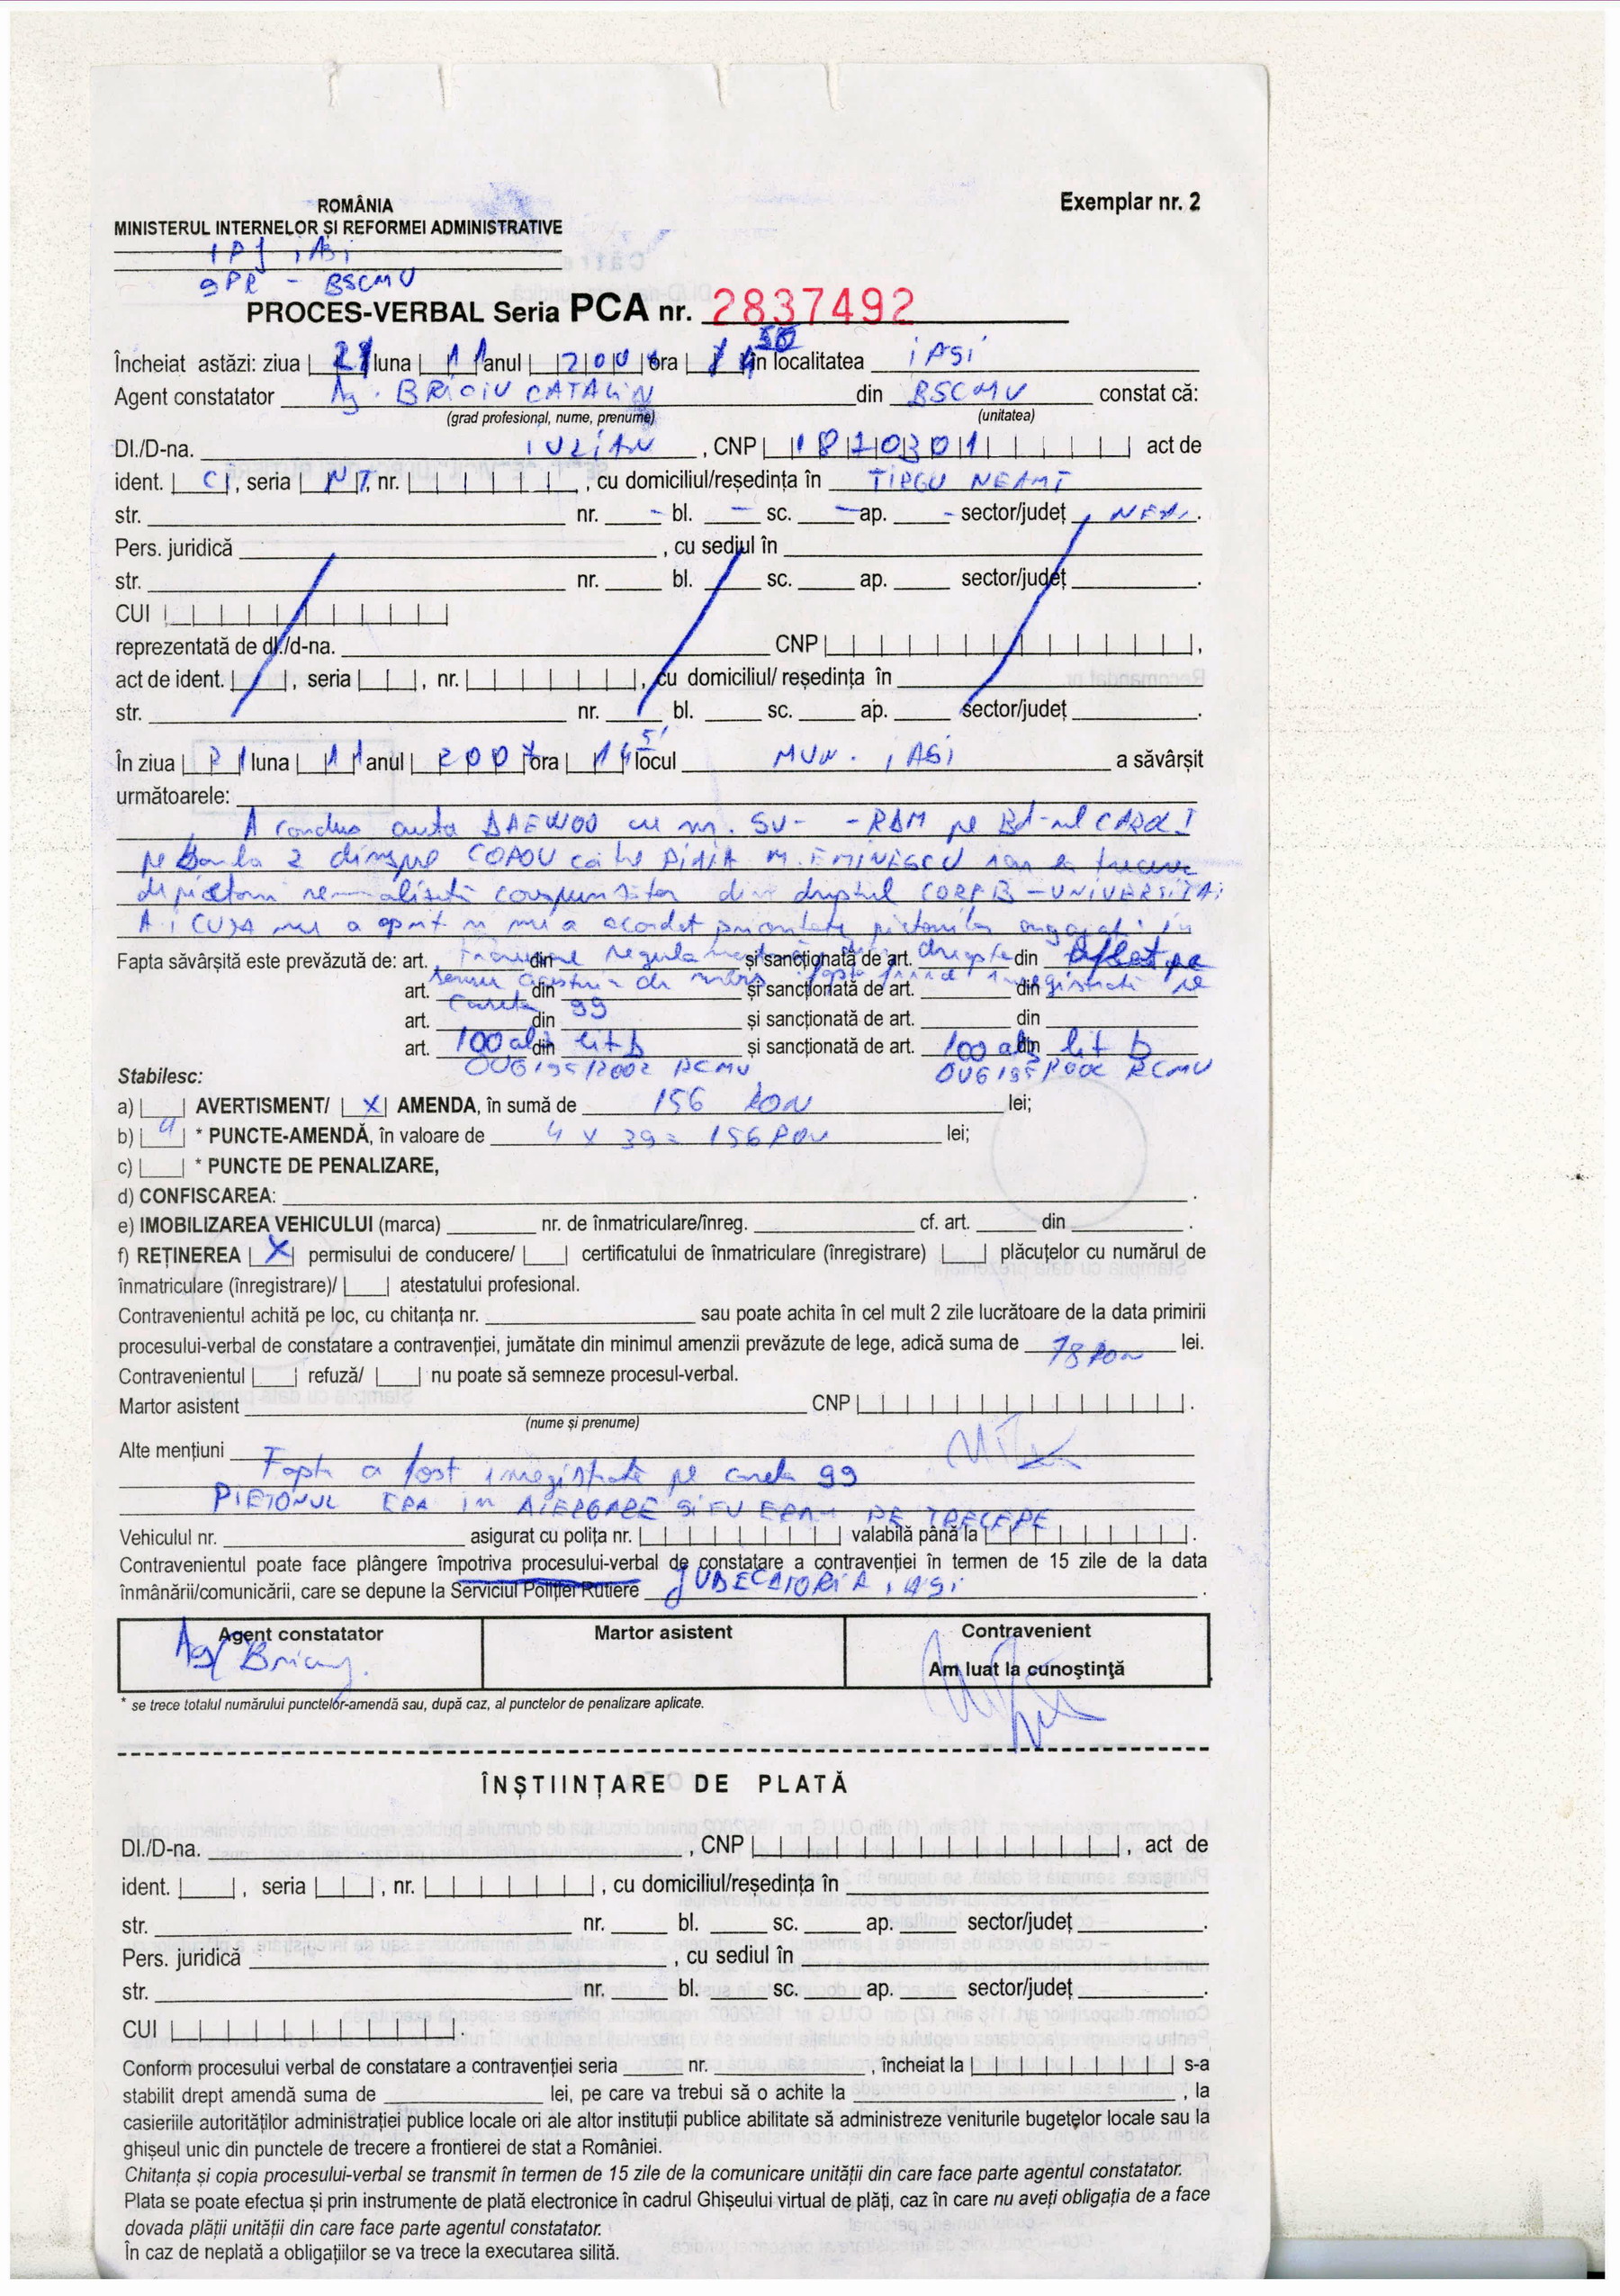 ROMÂNIA
MINISTERUL INTERNELOR ȘI REFORMEI ADMINISTRATIVE
Exemplar nr. 2
IPJ IASI
SPR - BSCMU
PROCES-VERBAL Seria PCA nr. 2837492
Încheiat astăzi: ziua 21 luna 11 anul 200 ora 14 50 în localitatea IASI
Agent constatator Ag. BRICIU CATALIN din BSCMU constat că:
(grad profesional, nume, prenume) (unitatea)
Dl./D-na. IULIAN, CNP 1820301 act de
ident. CI, seria NT, nr. , cu domiciliul/reședința în TIRGU NEAMT
str. nr. - bl. - sc. - ap. - sector/județ NEA.
Pers. juridică , cu sediul în
str. nr. bl. sc. ap. sector/județ .
CUI
reprezentată de dl./d-na. CNP ,
act de ident. , seria , nr. , cu domiciliul/ reședința în
str. nr. bl. sc. ap. sector/județ .
În ziua 21 luna 11 anul 2007 ora 14 locul MUN. IASI a săvârșit
următoarele:
A condus auto DAEWOO cu nr. SV- -RAM pe Bd-ul CAROL I
pe banda 2 dinspre COPOU către PIATA M. EMINESCU iar la trecere
de pietoni semnalizată corespunzător din dreptul CORP B - UNIVERSITATI
A I CUZA nu a oprit si nu a acordat prioritate pietonilor angajati în
Fapta săvârșită este prevăzută de: art. din și sancționată de art. din
traversare regulamentară dreapta aflat pe
art. din și sancționată de art. din
sensul acestuia de mers fapta fiind înregistrată pe
art. din și sancționată de art. din
caseta 99
art. 100 al 3 din lit b și sancționată de art. 100 al 3 din lit b
OUG 195/2002 RCMU OUG 195/2002 RCMU
Stabilesc:
a) AVERTISMENT/ X AMENDA, în sumă de 156 RON lei;
b) 4 * PUNCTE-AMENDĂ, în valoare de 4 x 39 = 156 RON lei;
c) * PUNCTE DE PENALIZARE,
d) CONFISCAREA: .
e) IMOBILIZAREA VEHICULUI (marca) nr. de înmatriculare/înreg. cf. art. din .
f) REȚINEREA X permisului de conducere/ certificatului de înmatriculare (înregistrare) plăcuțelor cu numărul de
înmatriculare (înregistrare)/ atestatului profesional.
Contravenientul achită pe loc, cu chitanța nr. sau poate achita în cel mult 2 zile lucrătoare de la data primirii
procesului-verbal de constatare a contravenției, jumătate din minimul amenzii prevăzute de lege, adică suma de 78 RON lei.
Contravenientul refuză/ nu poate să semneze procesul-verbal.
Martor asistent CNP .
(nume și prenume)
Alte mențiuni
Fapta a fost inregistrata pe caseta 99
PIETONUL ERA IN ALERGARE SI EU ERAM DE TRECERE
Vehiculul nr. asigurat cu polița nr. valabilă până la .
Contravenientul poate face plângere împotriva procesului-verbal de constatare a contravenției în termen de 15 zile de la data
înmânării/comunicării, care se depune la Serviciul Poliției Rutiere JUDECATORIA IASI .
Agent constatator Martor asistent Contravenient
Ag Briciu Am luat la cunoștință
* se trece totalul numărului punctelor-amendă sau, după caz, al punctelor de penalizare aplicate.
ÎNȘTIINȚARE DE PLATĂ
Dl./D-na. , CNP , act de
ident. , seria , nr. , cu domiciliul/reședința în
str. nr. bl. sc. ap. sector/județ .
Pers. juridică , cu sediul în
str. nr. bl. sc. ap. sector/județ .
CUI .
Conform procesului verbal de constatare a contravenției seria nr. , încheiat la s-a
stabilit drept amendă suma de lei, pe care va trebui să o achite la , la
casieriile autorităților administrației publice locale ori ale altor instituții publice abilitate să administreze veniturile bugetelor locale sau la
ghișeul unic din punctele de trecere a frontierei de stat a României.
Chitanța și copia procesului-verbal se transmit în termen de 15 zile de la comunicare unității din care face parte agentul constatator.
Plata se poate efectua și prin instrumente de plată electronice în cadrul Ghișeului virtual de plăți, caz în care nu aveți obligația de a face
dovada plății unității din care face parte agentul constatator.
În caz de neplată a obligațiilor se va trece la executarea silită.